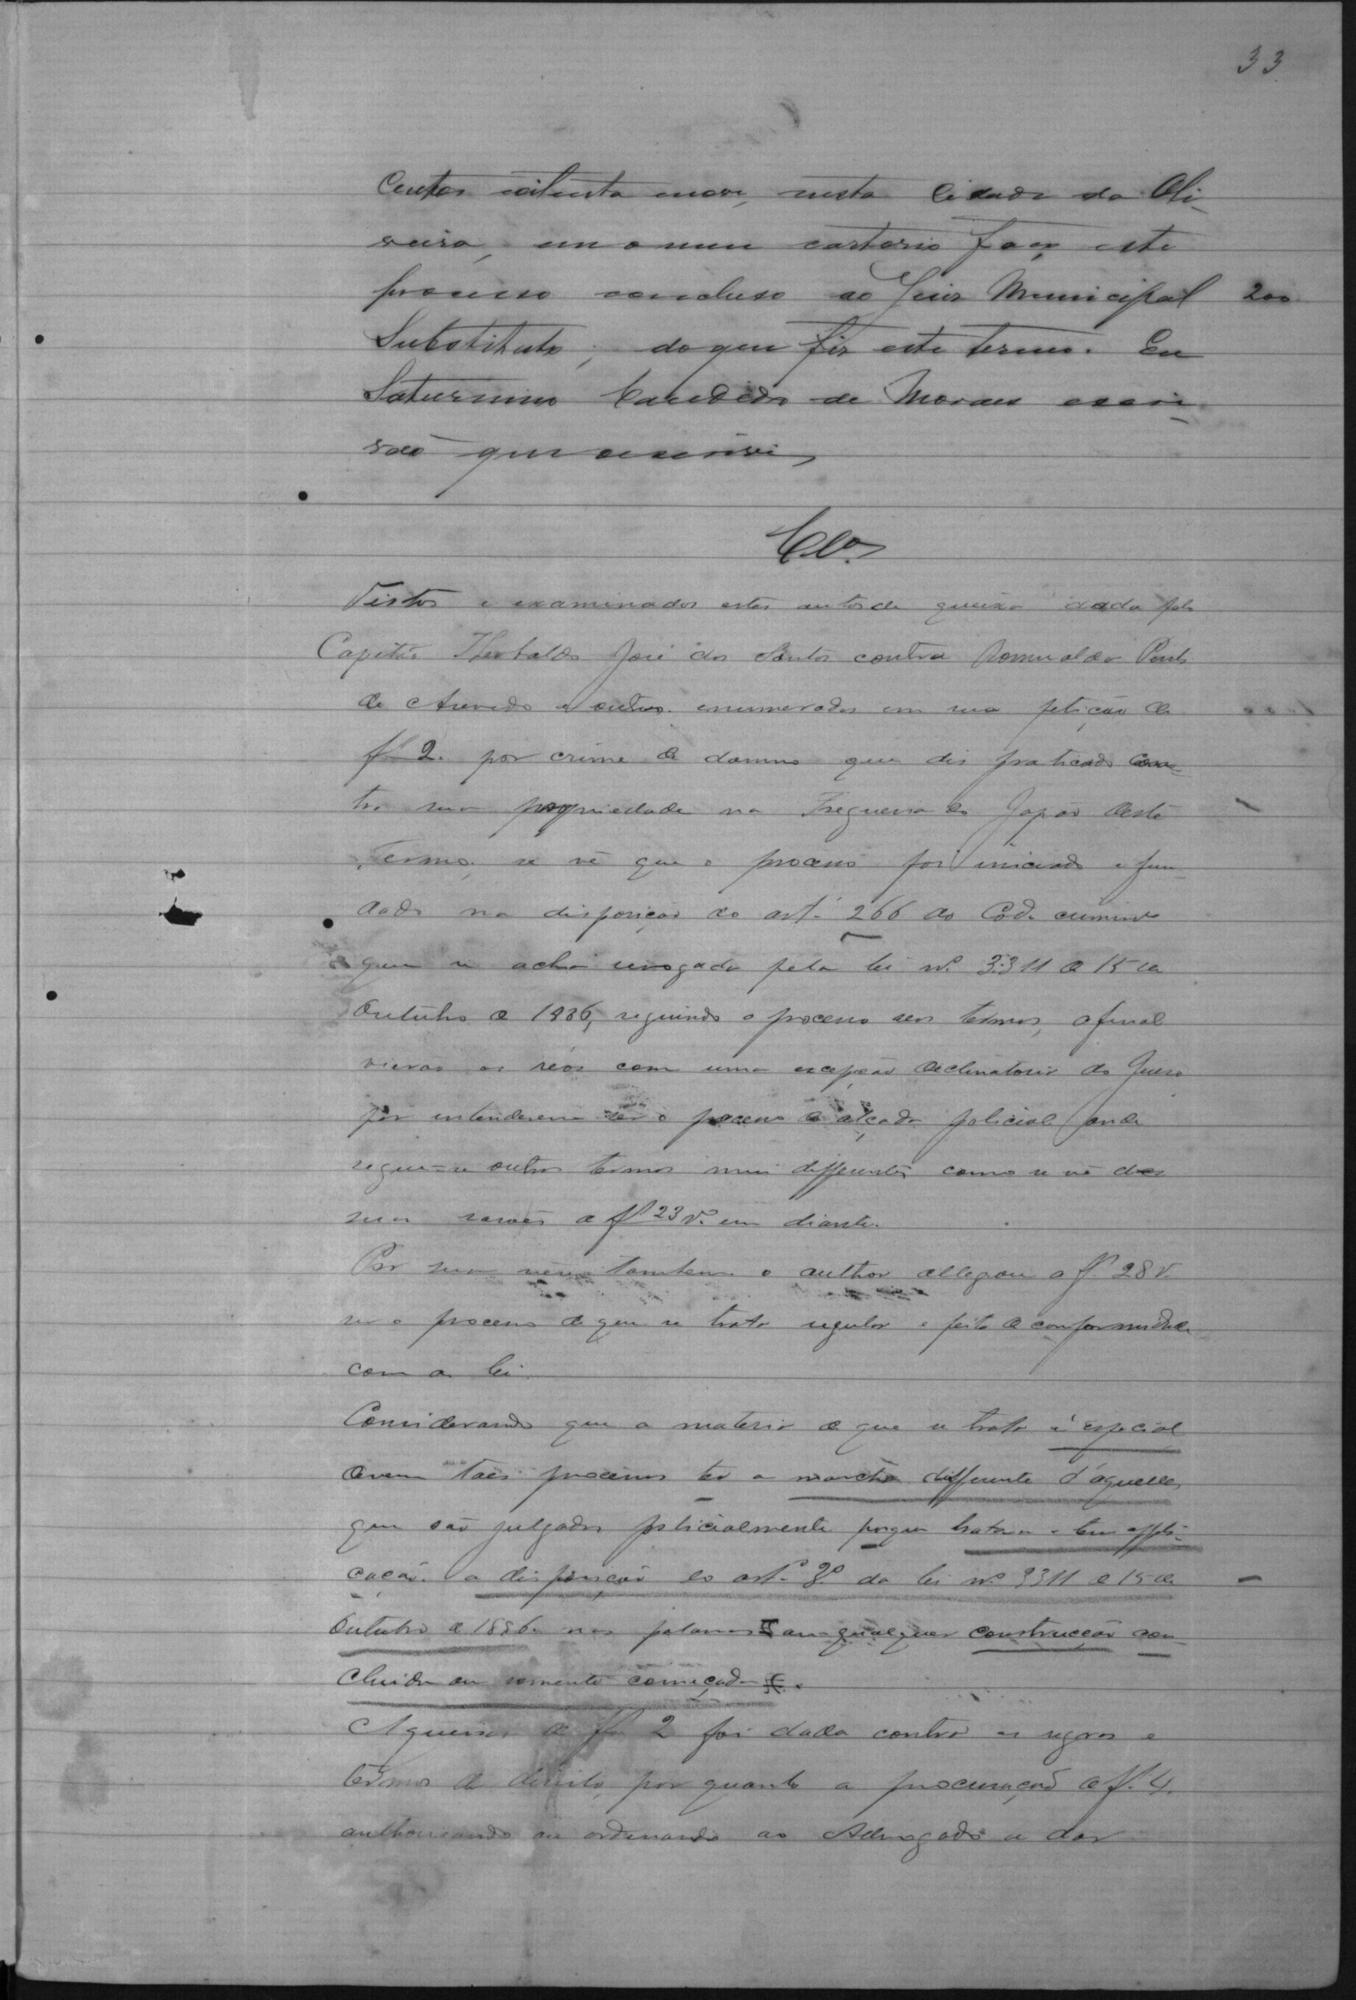 33
centos oitenta nove, nesta Cidade da Oli-
veira, em o meu cartorio faço este
processo concluso ao Juiz Municipal 200
Substituto; do que fiz este termo. Eu
Saturnino Candido de Moraes escri-
vão que escrevi,
Clos.
Vistos e examinados estes autos de queixa dada pelo
Capitão Theobaldo José dos Santos contra Romualdo
de Azevedo e outros enumerados em sua petição de
fl 2. por crime de damno que diz praticado con-
tra sua propriedade na Freguesia do Japão deste
Termo, se vê que o processo foi iniciado e fun-
dado na disposição do art.º 266 do Cod. criminal
que se acha revogado pela lei nº. 3311 de 15 de
Outubro de 1886, seguindo o processo seus termos, afinal
vierão os réos com uma excepção declinatoria do Juiso
por entenderem ser o processo de alçada policial onde
segue-se outros termos mui differentes como se vê das
suas rasões a fl 23 vº. em diante.
Por sua vez tambem o author allegou a fl. 28 v.
ser o processo de que se trata regular e feito de conformidade
com a lei.
Considerando que a materia de que se trata é especial
devem taes processos ter a marcha differente d'aquelles
que são julgados policialmente porque trata-se e tem appli-
cação a disposição do artº. 3º. da lei nº. 3311 de 15 de
Outubro de 1886. nas palavras ou qualquer construcção con-
cluida ou somente começada.
A queixa de fl 2 foi dada contra as regras e
termos de direito, por quanto a procuração de fl. 4.
authorisando ou ordenando ao Advogado a dar